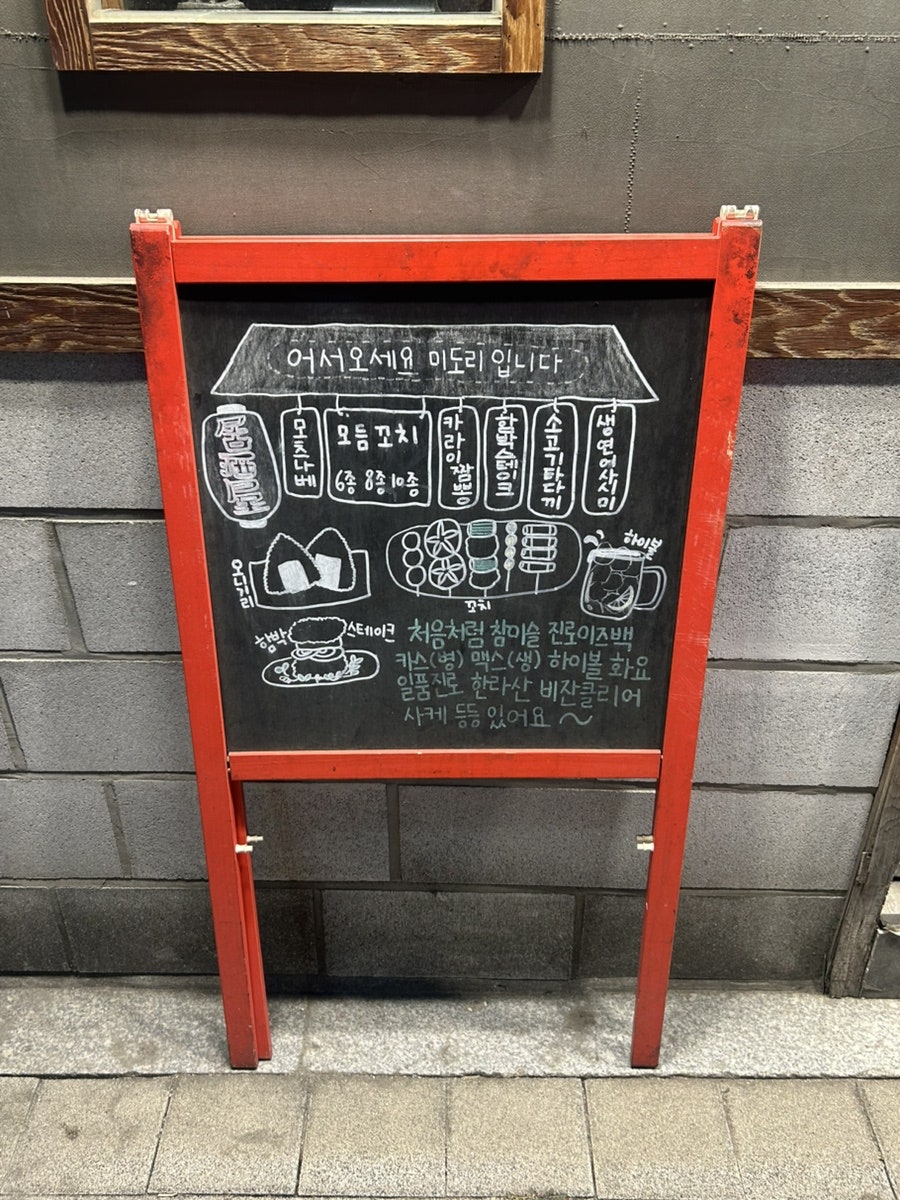 어서오세요 미도리입니다
居酒屋
모츠나베
모듬꼬치
6종 8종 10종
카라이짬뽕
함박스텡이크
소고기타다끼
생연어사시미
오니기리
꼬치
하이볼
함박 스테이크
처음처럼 참이슬 진로이즈백
카스(병) 맥스(생) 하이볼 화요
일품진로 한라산 비잔클리어
사케 등등 있어요 ~